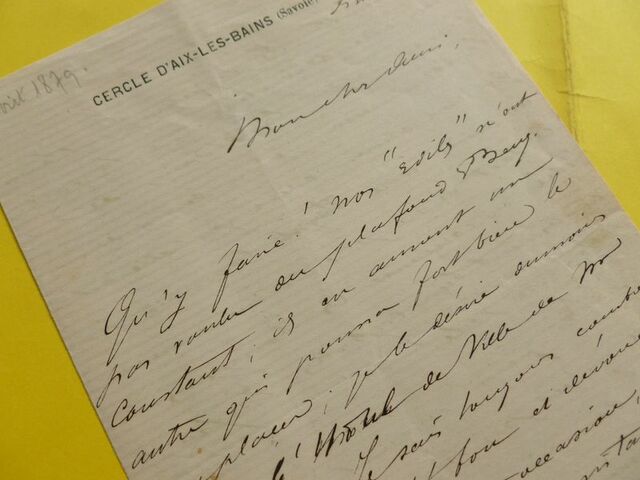 1879.
CERCLE D'AIX-LES-BAINS (Savoie)
Mon cher ami,
Qu'y faire! Nos "Edils" n'ont
pas voulu du plafond de Benj.
Constant; ils en aiment un
autre qui pourra fort bien le
remplacer; je le désire du moins
l'Hôtel de Ville de
Je suis toujours
bon et dévoué
occasion,